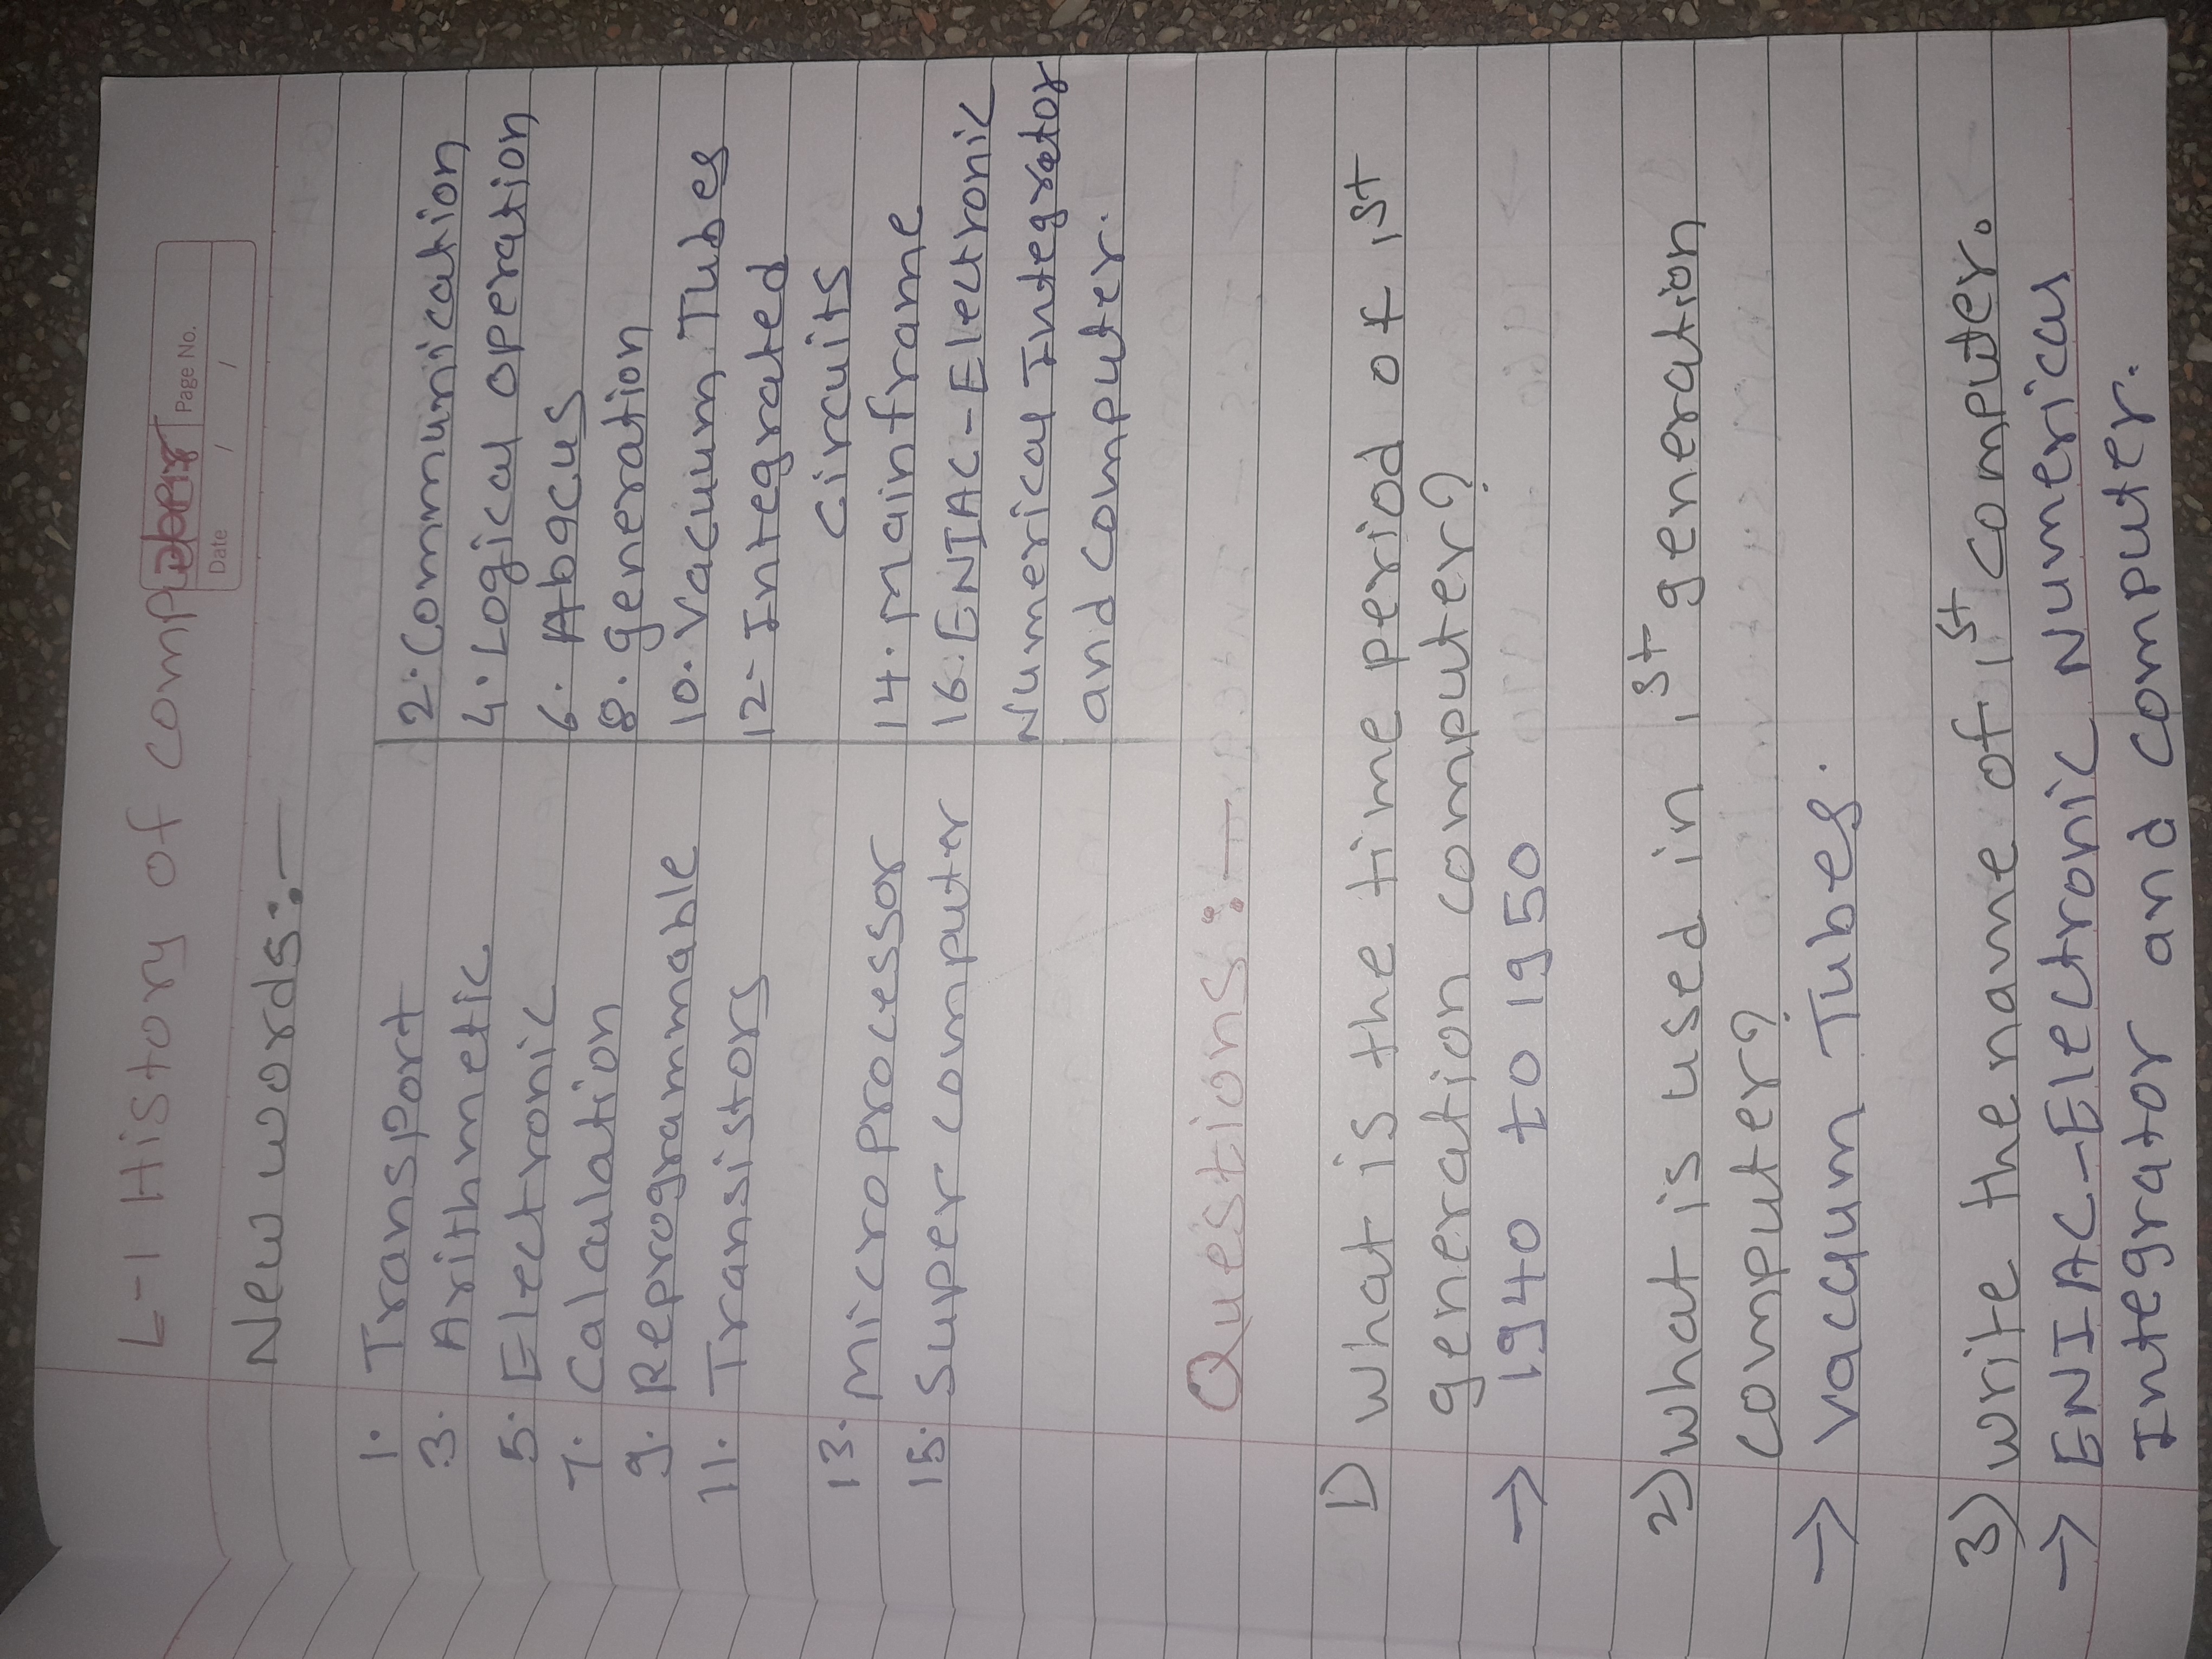 L-1 History of computer
Page No.
Date / /
New words:-
1. Transport
2. Communication
3. Arithmetic
4. Logical operation
5. Electronic
6. Abacus
7. Calculation
8. generation
9. Reprogrammable
10. Vacuum Tubes
11. Transistors
12- Integrated
Circuits
13. Microprocessor
14. Mainframe
15. Super computer
16. ENIAC-Electronic
Numerical Integrator
and computer.
Questions:-
1) what is the time period of 1st
generation computer?
→ 1940 to 1950
2) what is used in 1st generation
computer?
→ vacuum Tubes.
3) write the name of 1st computer.
→ ENIAC-Electronic Numerical
Integrator and computer.